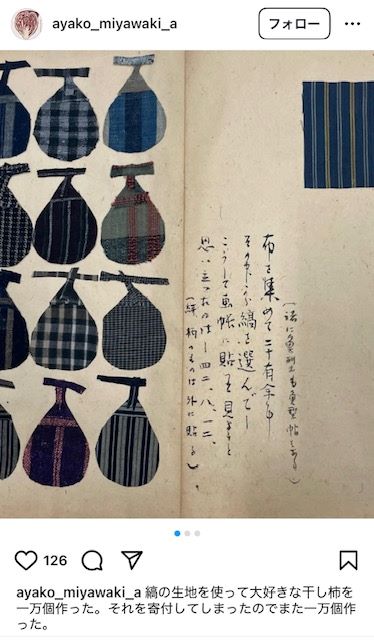 ayako_miyawaki_a
フォロー
布を集めて二十有余年
その中から縞を選んで
こうして画帳に貼って見ようと
思い立ったのは—四二、八、一二、
(絣、柄のものは外に貼る)
126
ayako_miyawaki_a 縞の生地を使って大好きな干し柿を
一万個作った。それを寄付してしまったのでまた一万個作
った。